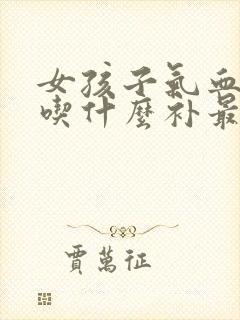 女孩子氣血
喫什麼补最
賈萬征